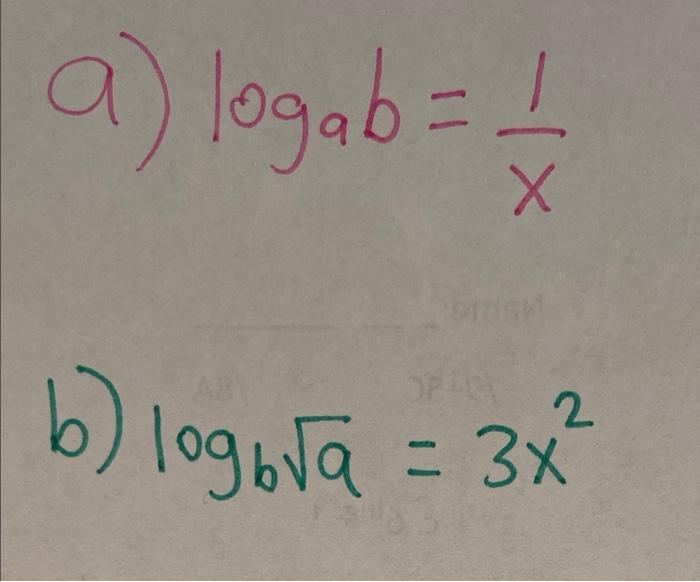 a) logₐb = 1/x
b) log_b√a = 3x²